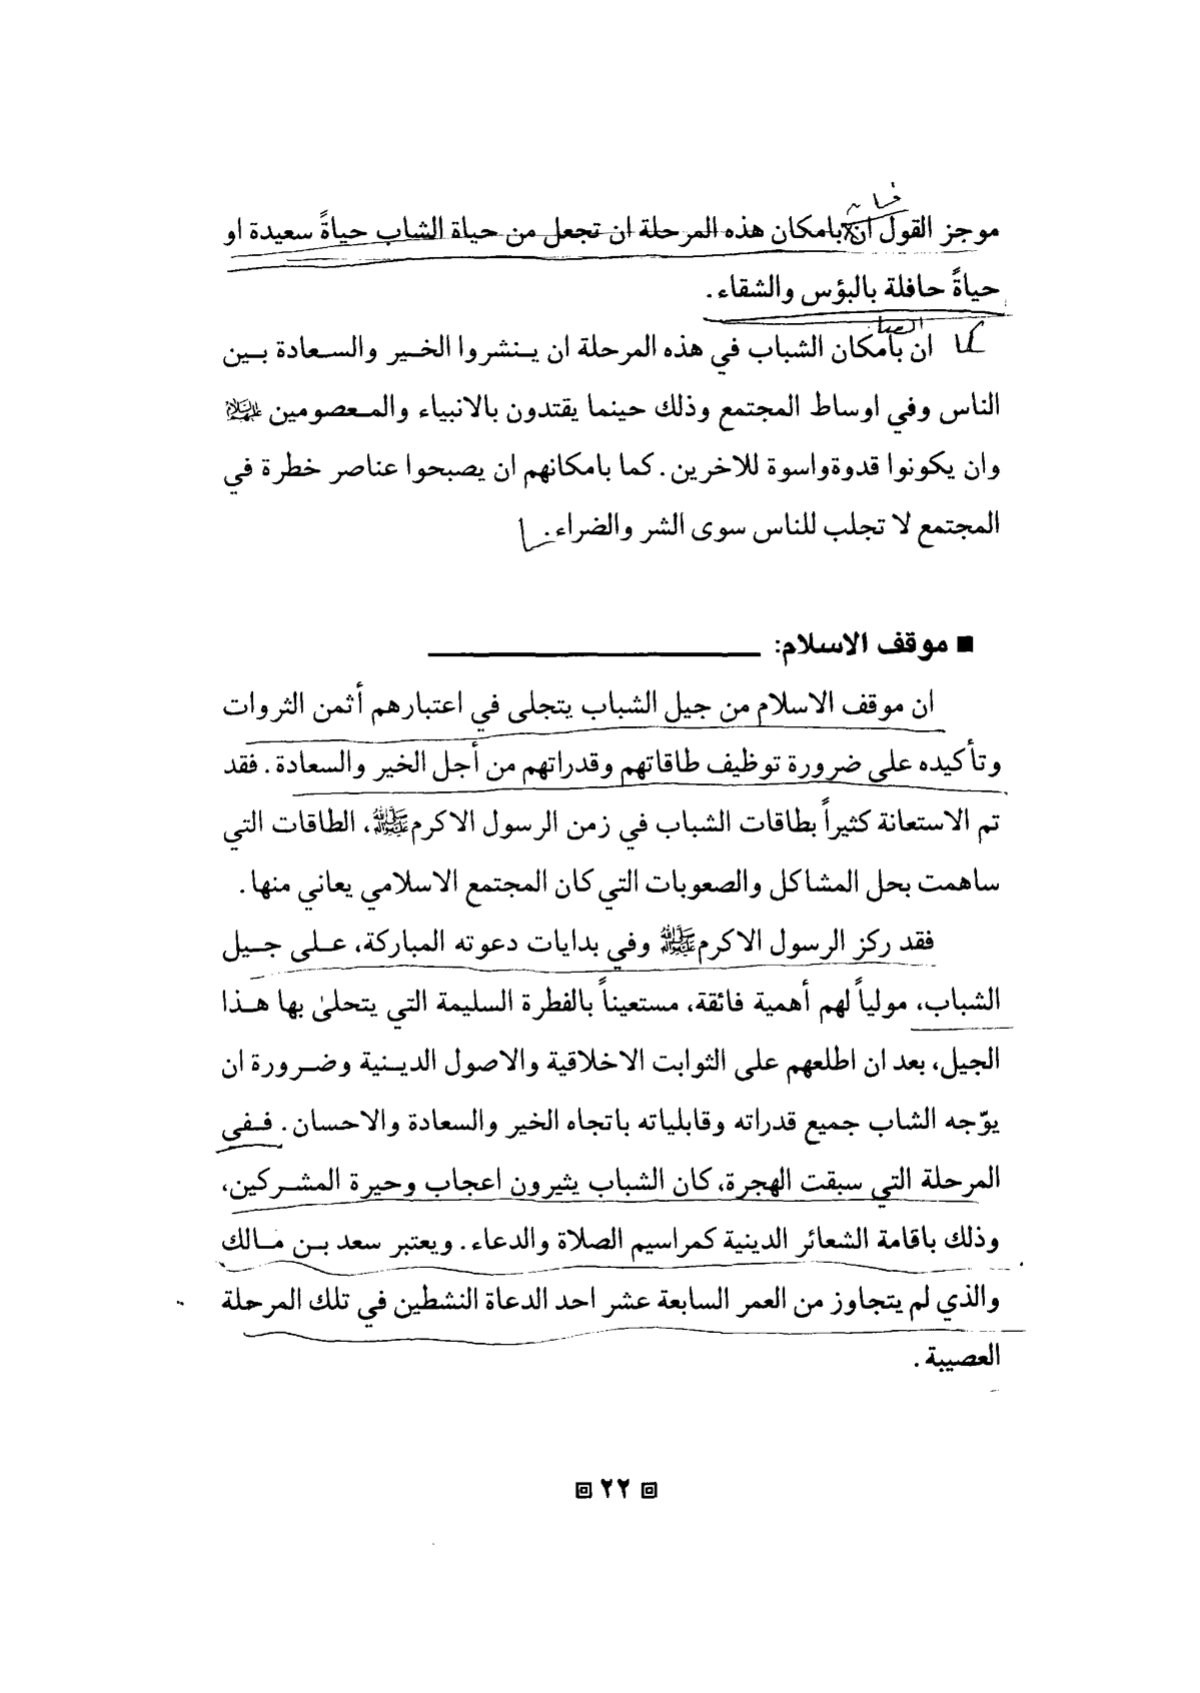 موجز القول ان بامكان هذه المرحلة ان تجعل من حياة الشاب حياةً سعيدة او
حياةً حافلة بالبؤس والشقاء.
ان بامكان الشباب في هذه المرحلة ان ينشروا الخير والسعادة بين
الناس وفي اوساط المجتمع وذلك حينما يقتدون بالانبياء والمعصومين
وان يكونوا قدوة واسوة للاخرين. كما بامكانهم ان يصبحوا عناصر خطرة في
المجتمع لا تجلب للناس سوى الشر والضراء.
■ موقف الاسلام:
ان موقف الاسلام من جيل الشباب يتجلى في اعتبارهم أثمن الثروات
وتأكيده على ضرورة توظيف طاقاتهم وقدراتهم من أجل الخير والسعادة. فقد
تم الاستعانة كثيراً بطاقات الشباب في زمن الرسول الاكرم ﷺ، الطاقات التي
ساهمت بحل المشاكل والصعوبات التي كان المجتمع الاسلامي يعاني منها.
فقد ركز الرسول الاكرم ﷺ وفي بدايات دعوته المباركة، على جيل
الشباب، مولياً لهم أهمية فائقة، مستعيناً بالفطرة السليمة التي يتحلىٰ بها هذا
الجيل، بعد ان اطلعهم على الثوابت الاخلاقية والاصول الدينية وضرورة ان
يوّجه الشاب جميع قدراته وقابلياته باتجاه الخير والسعادة والاحسان. ففي
المرحلة التي سبقت الهجرة، كان الشباب يثيرون اعجاب وحيرة المشركين،
وذلك باقامة الشعائر الدينية كمراسيم الصلاة والدعاء. ويعتبر سعد بن مالك
والذي لم يتجاوز من العمر السابعة عشر احد الدعاة النشطين في تلك المرحلة
العصيبة.
٢٢